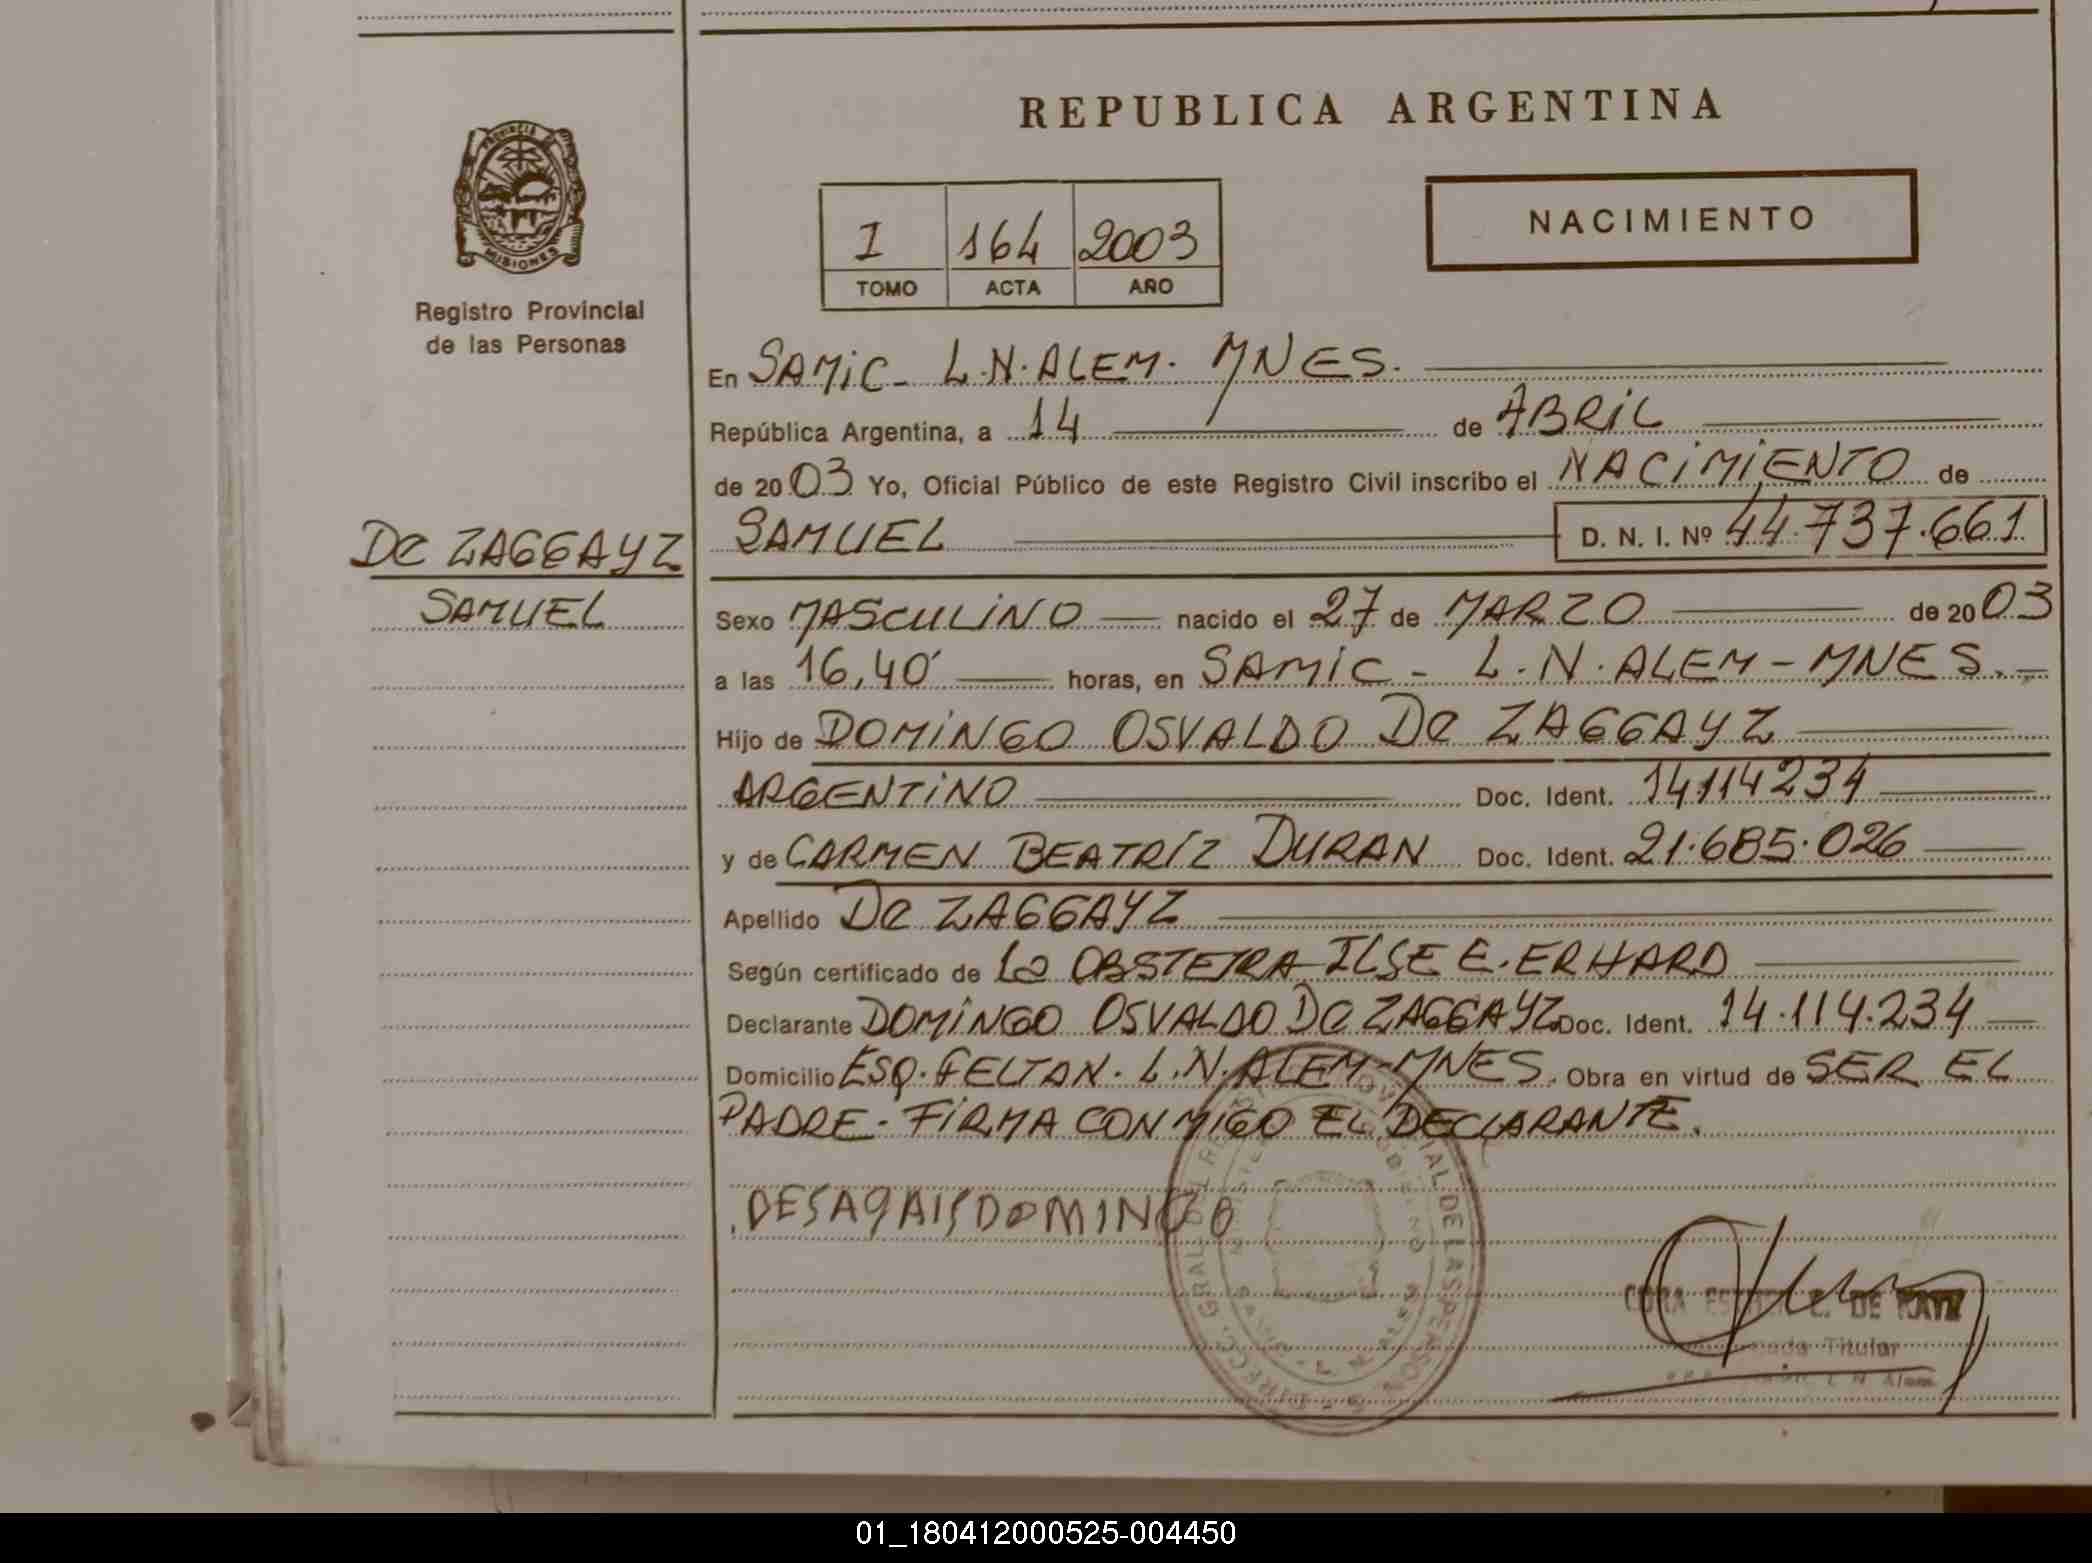 REPUBLICA ARGENTINA
PROVINCIA DE
MISIONES
Registro Provincial
de las Personas
I 164 2003
TOMO ACTA AÑO
NACIMIENTO
En SAMIC - L.N. ALEM. MNES.
República Argentina, a 14 de ABRIL
de 2003 Yo, Oficial Público de este Registro Civil inscribo el NACIMIENTO de
De ZAGGAYZ
SAMUEL
SAMUEL D. N. I. Nº 44.737.661
Sexo MASCULINO nacido el 27 de MARZO de 2003
a las 16,40 horas, en SAMIC - L.N. ALEM - MNES.
Hijo de DOMINGO OSVALDO De ZAGGAYZ
ARGENTINO Doc. Ident. 14114234
y de CARMEN BEATRIZ DURAN Doc. Ident. 21.685.026
Apellido De ZAGGAYZ
Según certificado de La OBSTETRA ILSE E. ERHARD
Declarante DOMINGO OSVALDO De ZAGGAYZ Doc. Ident. 14.114.234
Domicilio ESQ. FELTAN. L.N. ALEM - MNES. Obra en virtud de SER EL
PADRE - FIRMA CONMIGO EL DECLARANTE.
DESAGAIS DOMINGO
DE KAYZ
Titular
L N Alem
01_180412000525-004450